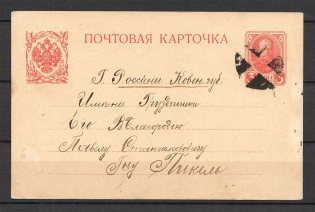 ПОЧТОВАЯ КАРТОЧКА
Г. Россіены Ковен. губ.
Имѣніе
Его Благородію
Павлу Станиславовичу
Гну Пикель